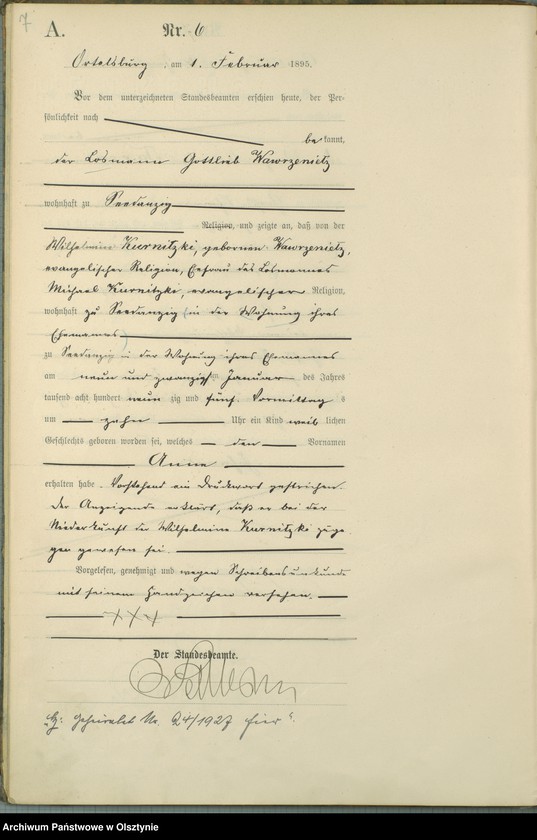 7
A.
Nr. 6
Ortelsburg, am 1. Februar 1895.
Vor dem unterzeichneten Standesbeamten erschien heute, der Per-
sönlichkeit nach
bekannt,
der Losmann Gottlieb Wawrzenietz
wohnhaft zu Seedanzig
Religion, und zeigte an, daß von der
Wilhelmine Kurnitzki, geborenen Wawrzenietz,
evangelischer Religion, Ehefrau des Losmannes
Michael Kurnitzki, evangelischer Religion,
wohnhaft zu Seedanzig (in der Wohnung ihres
Ehemannes)
zu Seedanzig in der Wohnung ihres Ehemannes
am neun und zwanzigsten Januar des Jahres
tausend acht hundert neunzig und fünf Vormittags
um zehn Uhr ein Kind weiblichen
Geschlechts geboren worden sei, welches den Vornamen
Anna
erhalten habe. Vorstehend ein Druckwort gestrichen.
Der Anzeigende erklärt, daß er bei der
Niederkunft der Wilhelmine Kurnitzki zuge-
gen gewesen sei.
Vorgelesen, genehmigt und wegen Schreibensunkunde
mit seinem Handzeichen versehen.
+++
Der Standesbeamte.
Geheiratet Nr. 24/1927 hier".
Archiwum Państwowe w Olsztynie